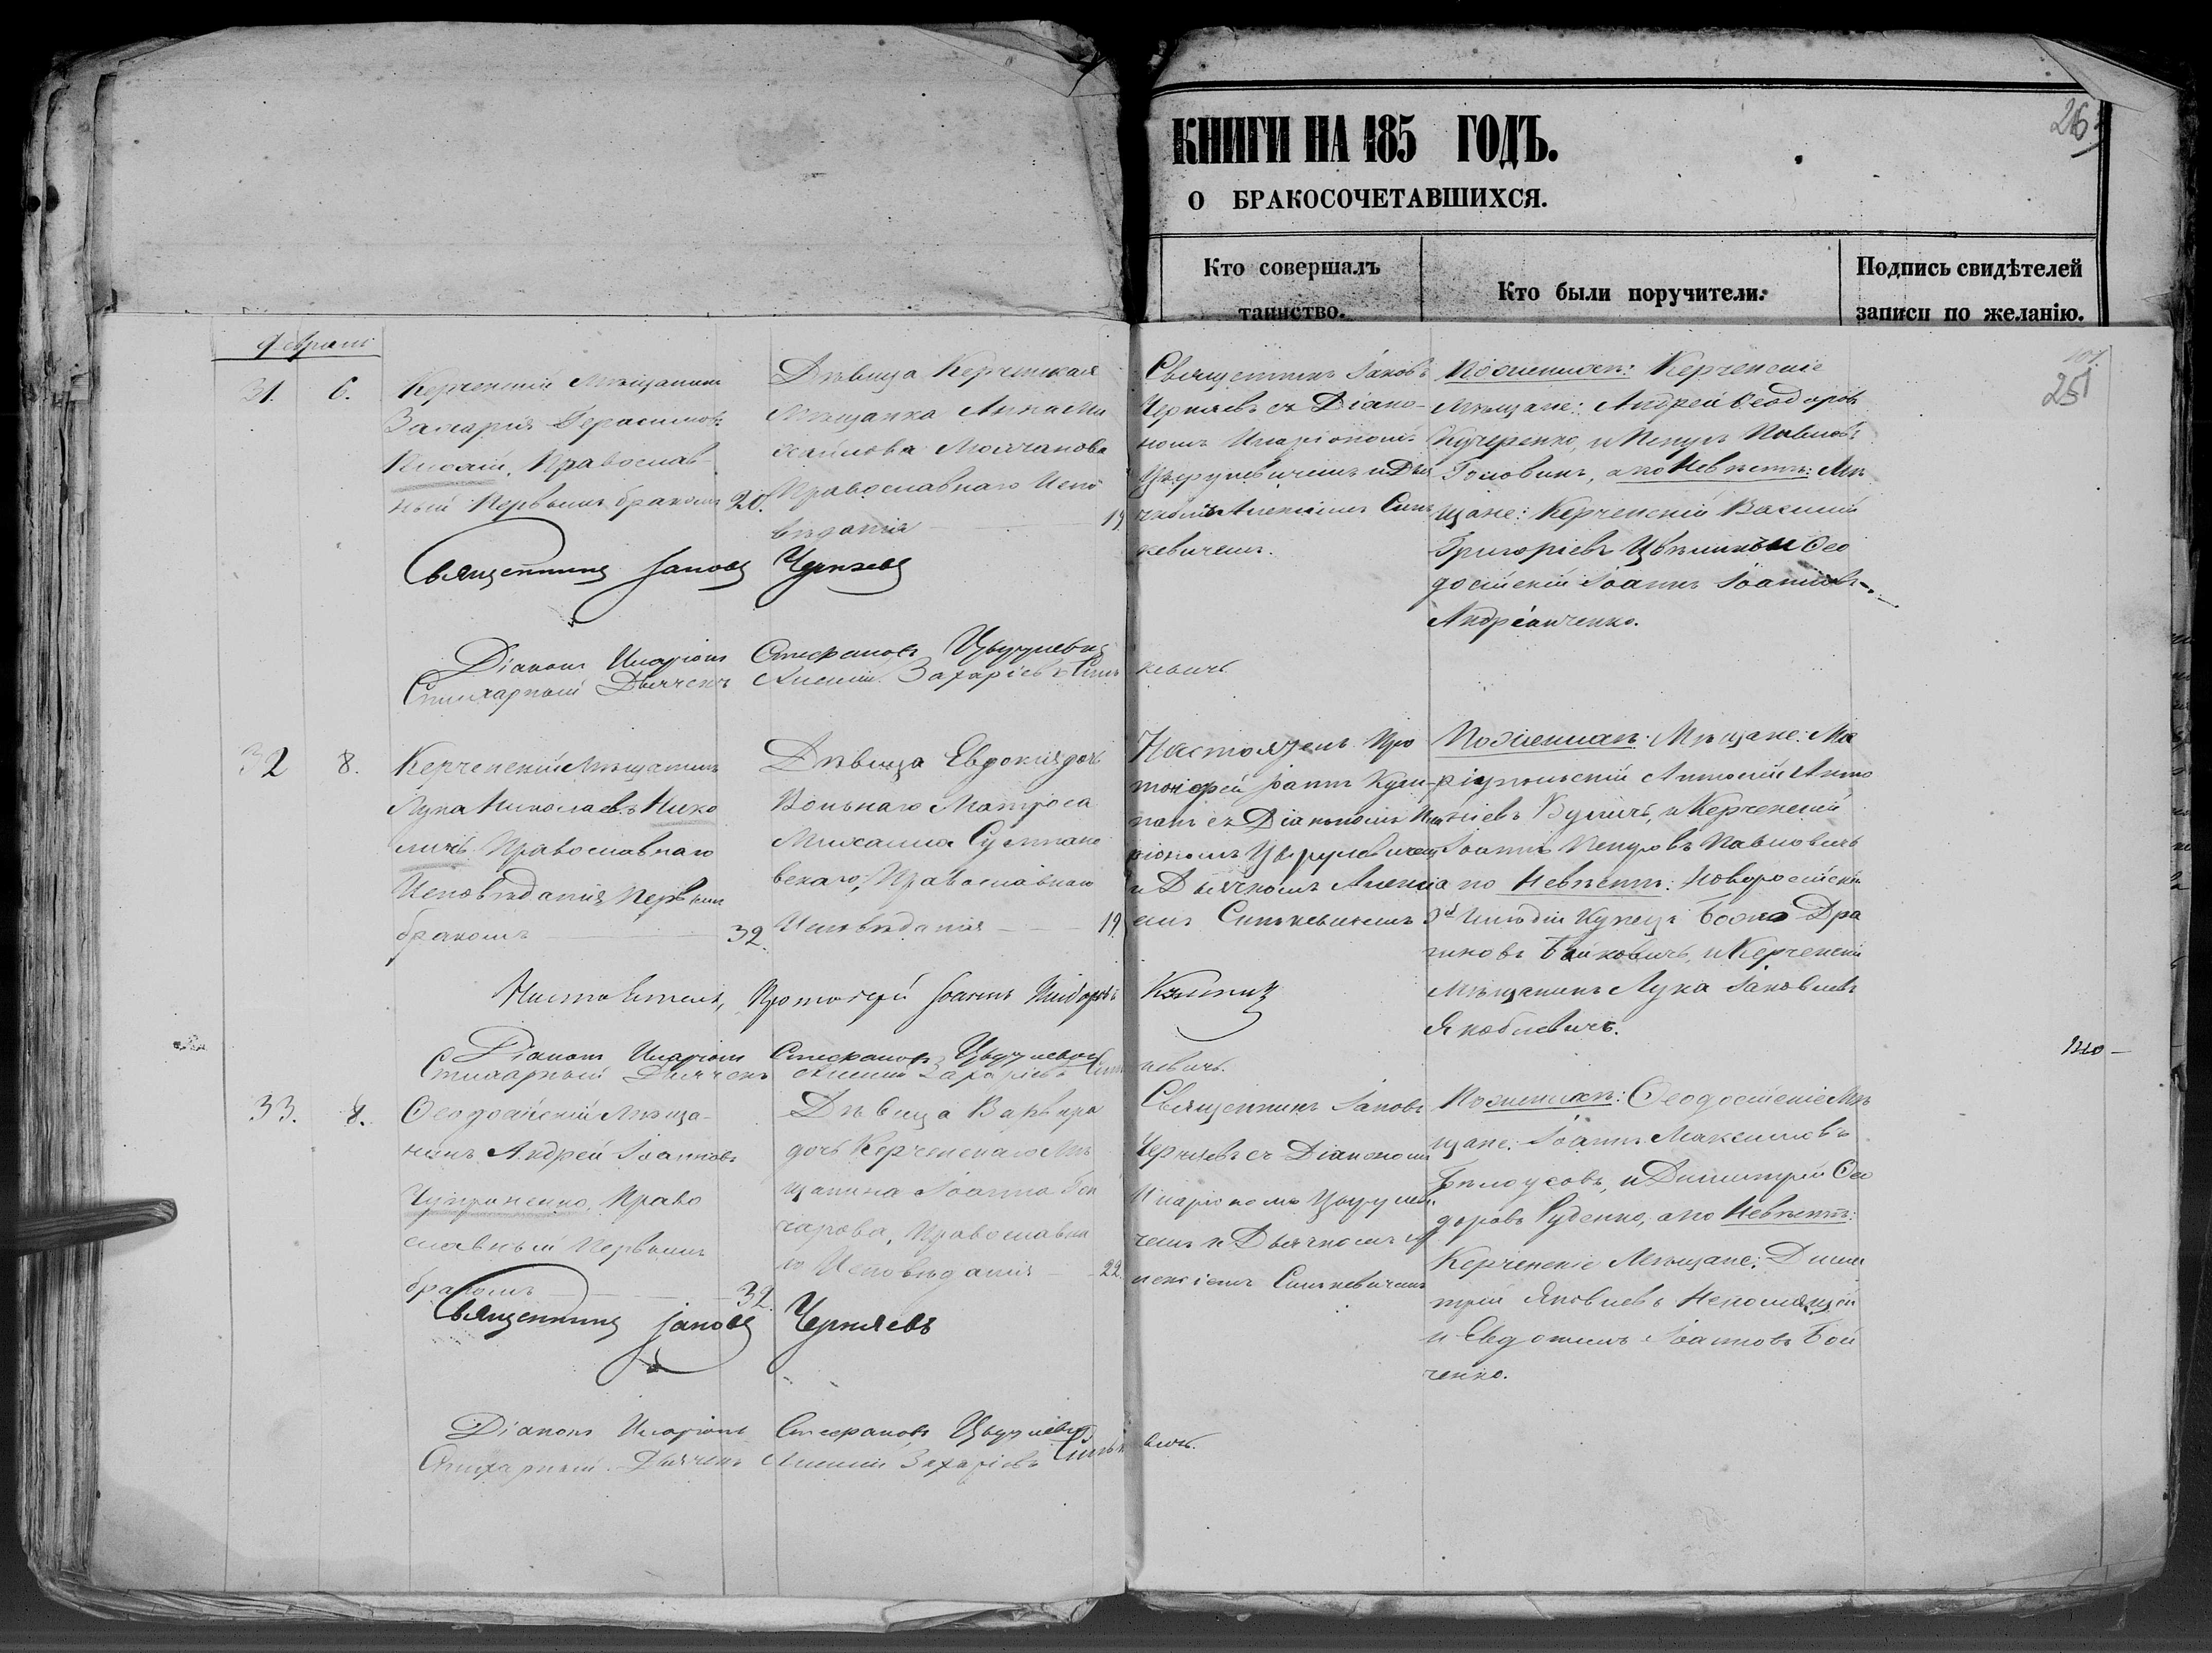 КНИГИ НА 185 ГОДЪ.
О БРАКОСОЧЕТАВШИХСЯ.
Кто совершалъ
таинство.
Кто были поручители.
Подпись свидѣтелей
записи по желанію.
251
31. 6.
Керченскій Мѣщанинъ
Захарія Герасимовъ
Православ-
ный Первымъ бракомъ 20.
Дѣвица Керченская
Мѣщанка Анна Ми
хайлова Молчанова
Православнаго Испо
вѣданія 19
Священникъ Іаковъ
Черняевъ съ Діако-
номъ Иларіономъ
Поженихѣ: Керченскіе
Мѣщане: Андрей Ѳеодоровъ
Кучеренко, и Петръ Павловъ
Головинъ, а по Невѣстѣ: Мѣ
щане: Керченскій Василій
Григорьевъ и Ѳео
досійскій Іоаннъ Іоанновъ
Андреиченко.
Священникъ Іаковъ Черняевъ
Діаконъ Иларіонъ Стефановъ
Стихарный Дьячекъ Алексій Захаріевъ
32 8.
Керченскій Мѣщанинъ
Лука Николаевъ Нико
личъ Православнаго
Исповѣданія Первымъ
бракомъ 32.
Дѣвица Евдокія дочь
Вольнаго Матроса
Михаила Султано
вскаго, Православнаго
Исповѣданія 19
Настоятель Про
тоіерей Іоаннъ
съ Діакономъ Ила
ріономъ
и Дьячкомъ Алексі
емъ Синькевичемъ
Поженихѣ: Мѣщане: Ма
ріупольскій Антоній Анто
ніевъ Вучичъ, и Керченскій
Іоаннъ Петровъ Павловичъ
а по Невѣстѣ: Новоросійскій
3й Гильдіи Купецъ Божо Дра
гиновъ Байковичъ, и Керченскій
Мѣщанинъ Лука Іаковлевъ
Яковлевичъ.
Настоятель, Протоіерей Іоаннъ
Діаконъ Иларіонъ Стефановъ
Стихарный Дьячекъ Алексій Захаріевъ Синькевичъ.
33. 8.
Ѳеодосійскій Мѣща-
нинъ Андрей Іоанновъ
Чупрыненко, Право
славный Первымъ
бракомъ 32.
Дѣвица Варвара
дочь Керченскаго Мѣ
щанина Іоанна Гон
чарова, Православна
го Исповѣданія 22.
Священникъ Іаковъ
Черняевъ съ Діакономъ
Иларіономъ
чемъ и Дьячкомъ Ал
ексіемъ Синькевичемъ
Поженихѣ: Ѳеодосійскіе Мѣ
щане: Іоаннъ Максимовъ
Бѣлоусовъ, и Димитрій Ѳео
доровъ Руденко, а по Невѣстѣ:
Керченскіе Мѣщане: Дими
трій Яковлевъ Непомнящій
и Евдокимъ Іоанновъ Бой
ченко.
Священникъ Іаковъ Черняевъ
Діаконъ Иларіонъ Стефановъ
Стихарный Дьячекъ Алексій Захаріевъ